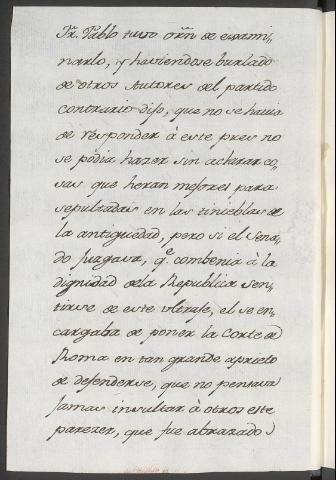 Fr. Pablo tuvo orñ de exami-
narlo, y haviendose burlado
de otros Autores del partido
contrario dijo, que no se havia
de responder à este pues no
se podia hazer sin aclarar co-
sas que heran mejores para
sepultadas en las tinieblas de
la antiguedad, pero si el Sena-
do juzgava, q.e combenia à la
dignidad dela Republica sen-
tirse de este ultraje, el se en-
cargaba de poner la Corte de
Roma en tan grande aprieto
de defenderse, que no pensava
jamas insultar à otros este
parezer, que fue abrazado